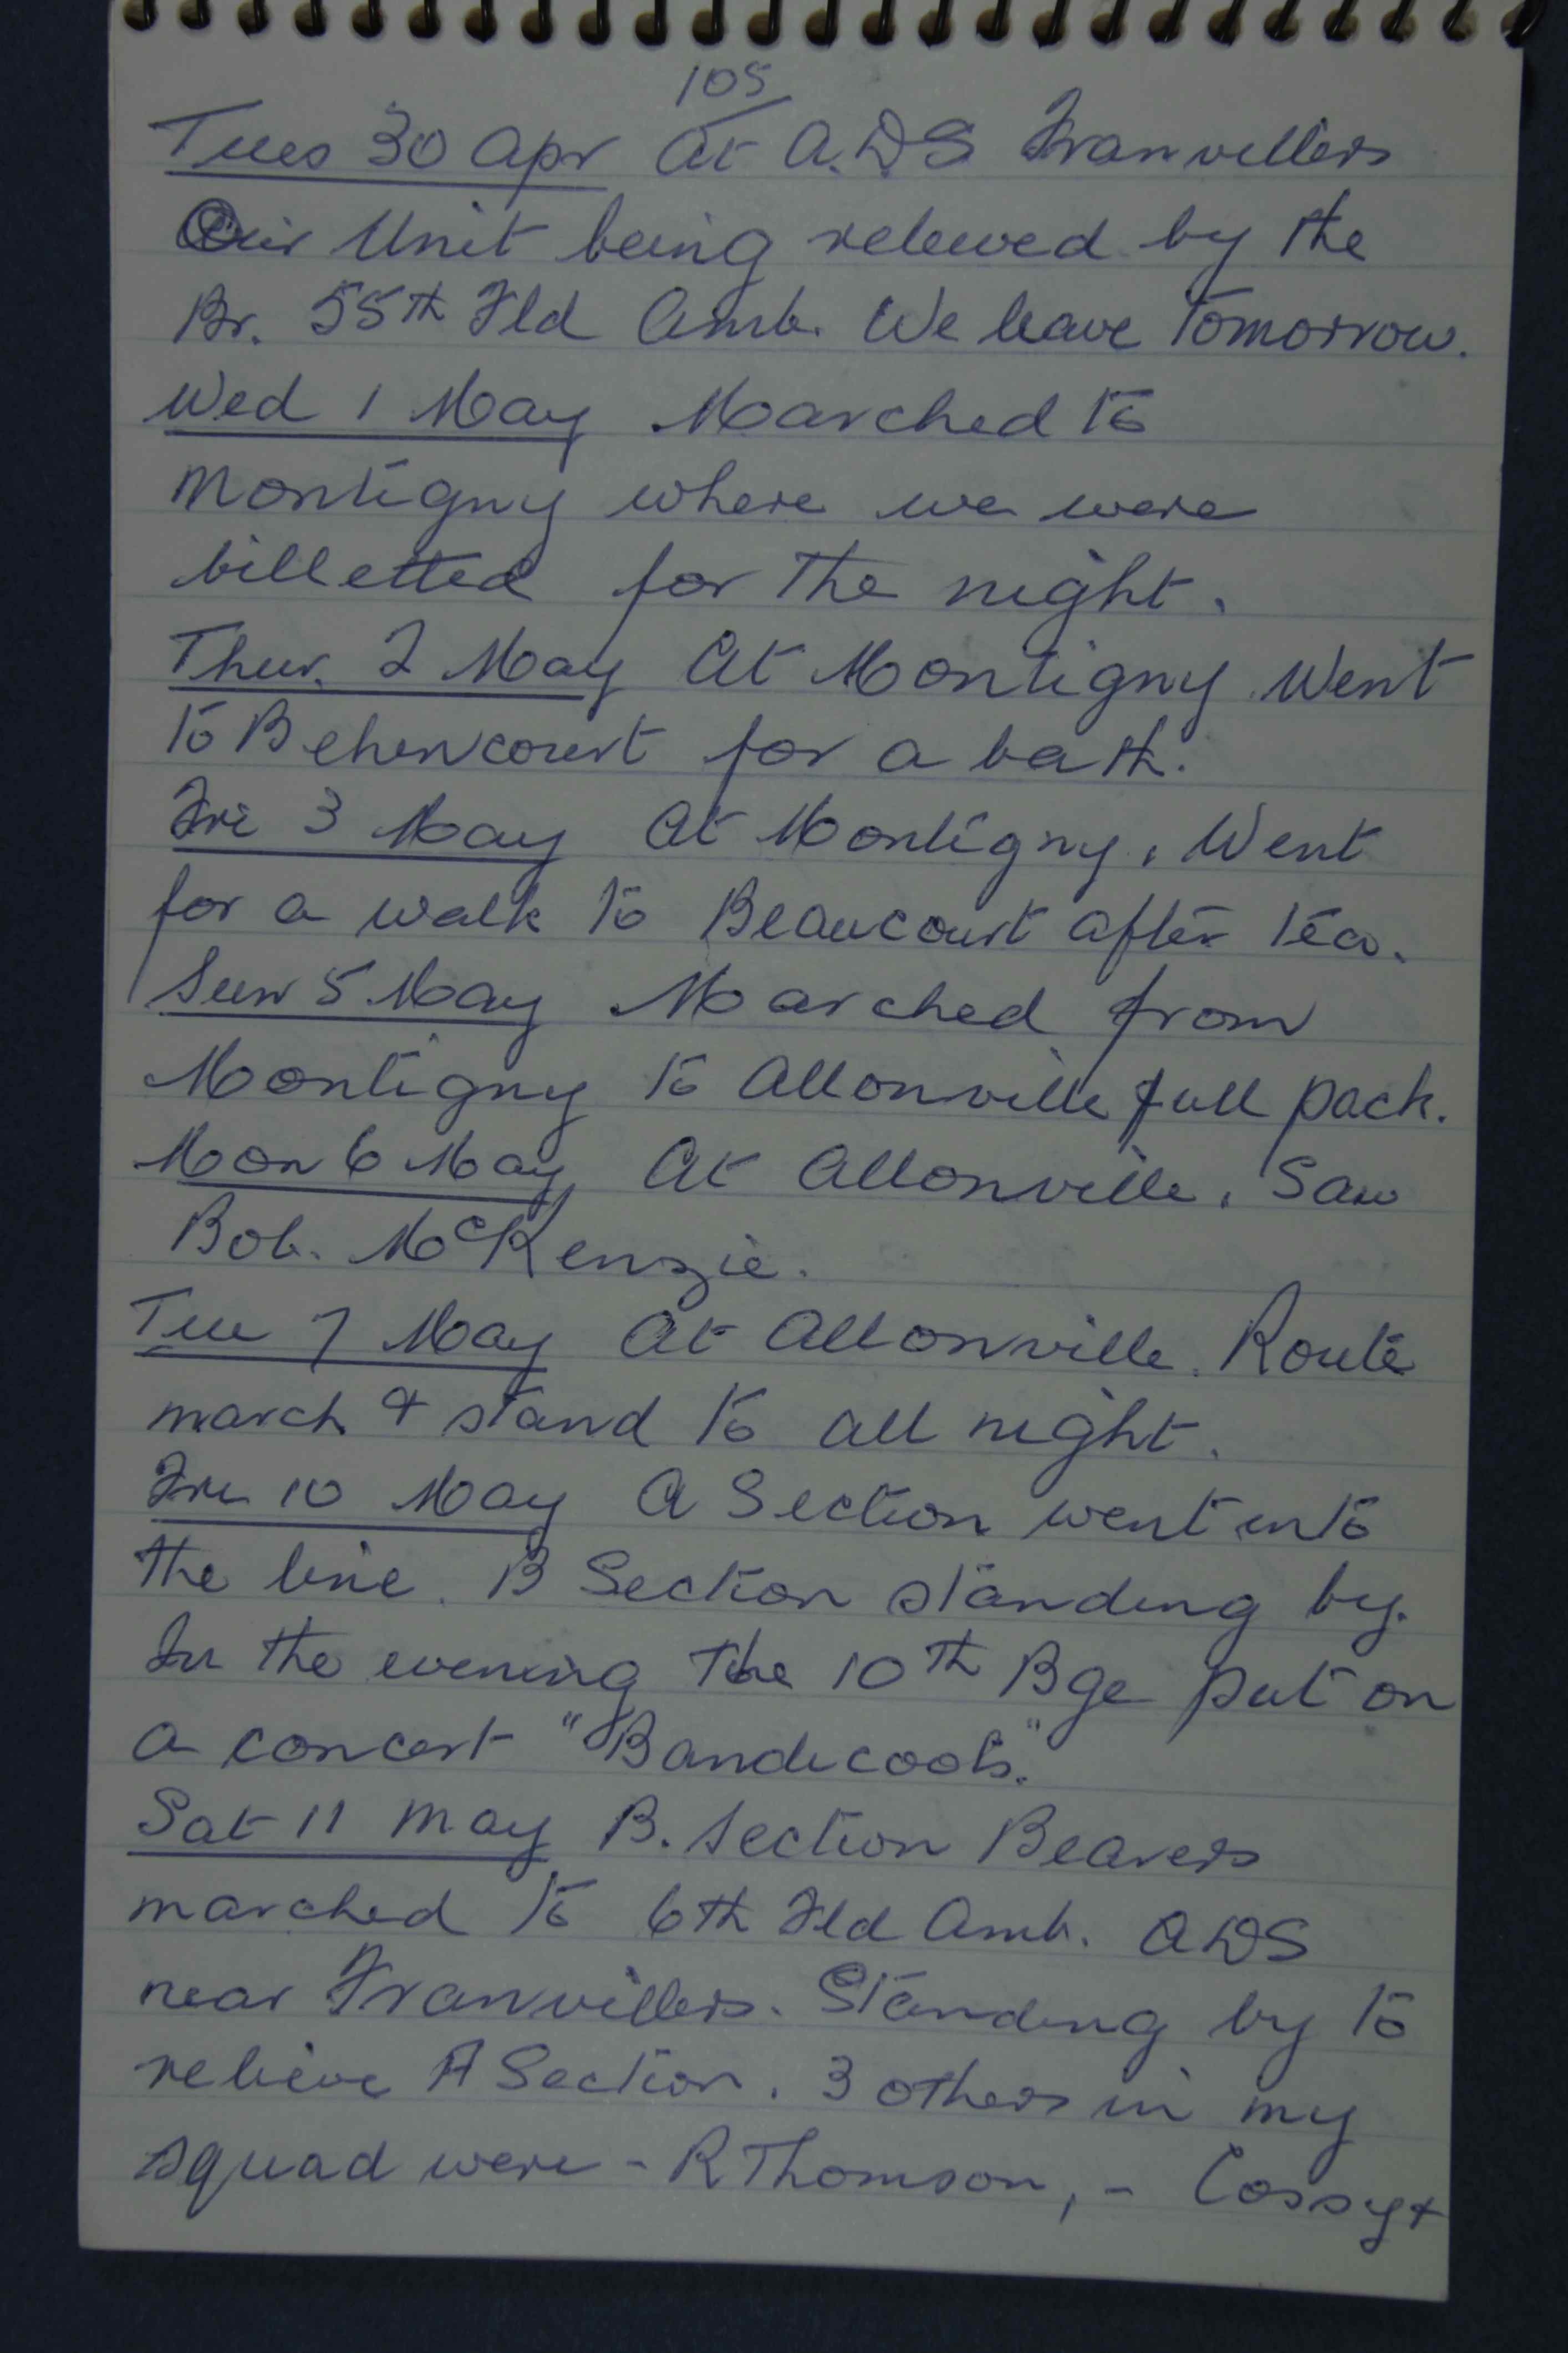 105
Tues 30 Apr At A.D.S Franvillers
Our Unit being relieved by the
Br. 55th Fld Amb. We leave tomorrow.
Wed 1 May Marched to
Montigny where we were
billetted for the night.
Thur. 2 May At Montigny Went
to Behencourt for a bath.
Fri 3 May At Montigny. Went
for a walk to Beaucourt after tea.
Sun 5 May Marched from
Montigny to Allonville full pack.
Mon 6 May At Allonville. Saw
Bob. McKenzie.
Tue 7 May At Allonville. Route
march & stand to all night.
Fri 10 May A Section went into
the line. B Section standing by.
In the evening the 10th Bge put on
a concert "Bandicoots."
Sat 11 May B. Section Bearers
marched to 6th Fld Amb. ADS
near Franvillers. Standing by to
relieve A Section. 3 others in my
squad were - R Thomson, - Cossy +